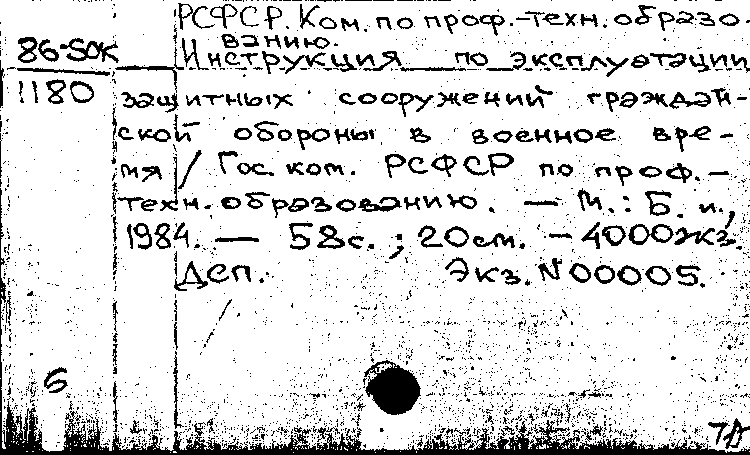 РСФСР. Ком. по проф.-техн. образо
ванию.
86-50К
Инструкция по эксплуатации
1180
защитных сооружений граждан-
ской обороны в военное вре-
мя / Гос. ком. РСФСР по проф.-
техн. образованию. — М.: Б. и.,
1984. — 58с. ; 20см. — 4000экз.
Дсп. Экз. N 00005.
6